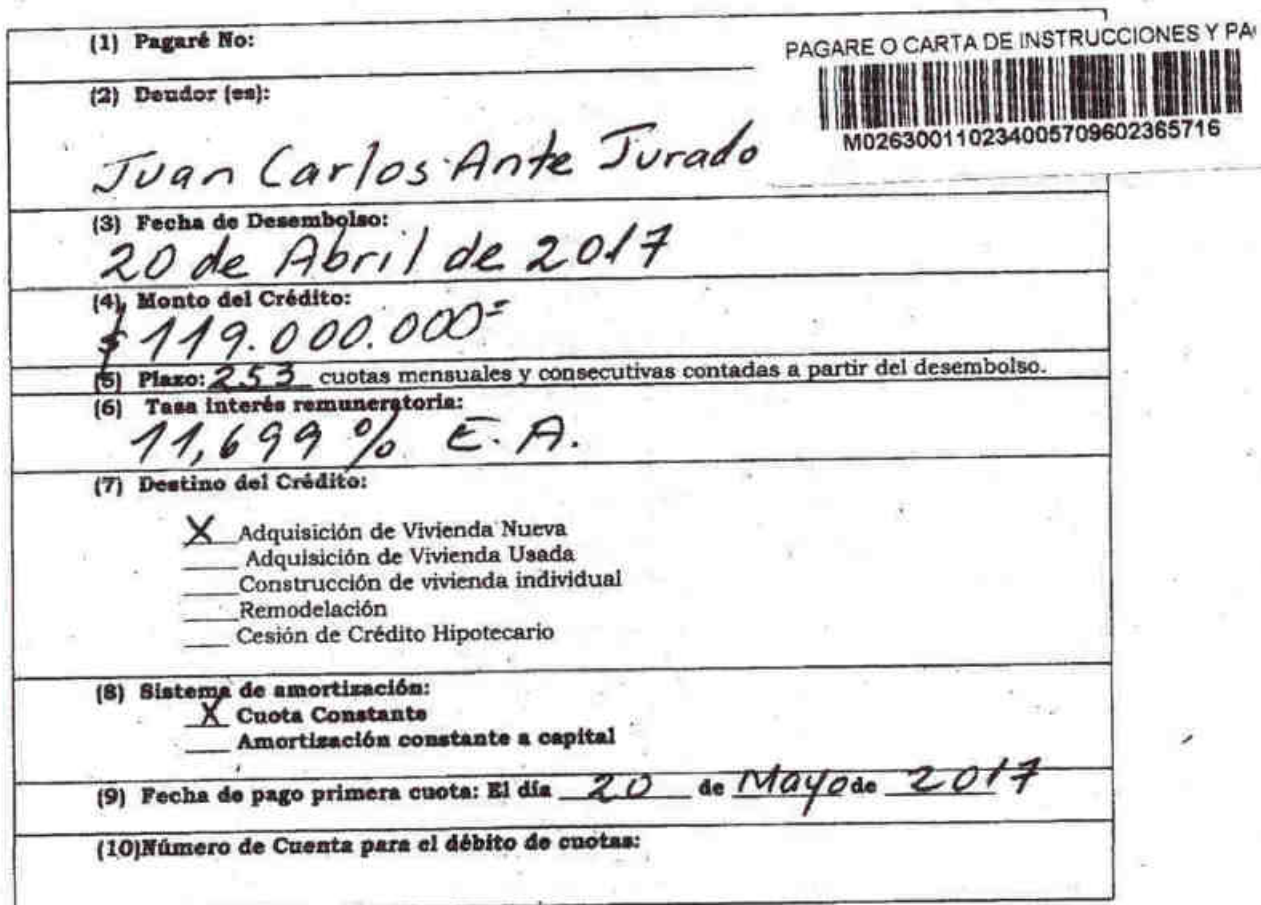 (1) Pagaré No:
PAGARE O CARTA DE INSTRUCCIONES Y PA
M026300110234005709602365716
(2) Deudor (es):
Juan Carlos Ante Jurado
(3) Fecha de Desembolso:
20 de Abril de 2017
(4) Monto del Crédito:
$ 119.000.000=
(5) Plazo: 253 cuotas mensuales y consecutivas contadas a partir del desembolso.
(6) Tasa interés remuneratoria:
11,699 % E.A.
(7) Destino del Crédito:
X Adquisición de Vivienda Nueva
___ Adquisición de Vivienda Usada
___ Construcción de vivienda individual
___ Remodelación
___ Cesión de Crédito Hipotecario
(8) Sistema de amortización:
X Cuota Constante
___ Amortización constante a capital
(9) Fecha de pago primera cuota: El día 20 de Mayo de 2017
(10)Número de Cuenta para el débito de cuotas: